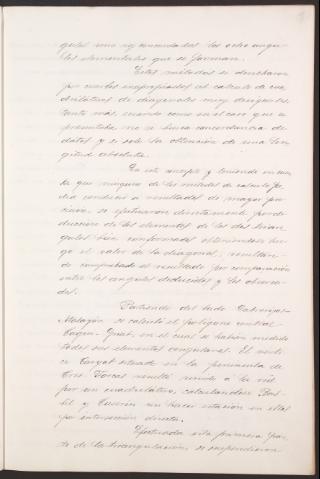 gulos una vez conocidos los ocho angu-
los elementales que se forman.
Estos métodos se desecharon
por ambos inapropiados al cálculo de cua-
driláteros de diagonales muy desiguales,
tanto más, cuando como en el caso que se
presentaba no se busca concordancia de
datos y si solo la obtención de una lon-
gitud absoluta.
En este concepto y teniendo en cuen-
ta que ninguno de los métodos de cálculo po-
dia conducir a resultados de mayor pre-
cision, se efectuaron directamente por de-
duccion de los elementos de los dos trian-
gulos bien conformados obteniendose lue-
go el valor de la diagonal, resultan-
do comprobado el resultado por comparación
entre los angulos deducidos y los observa-
dos.
Partiendo del lado
se calculó el poligono central
en el cual se habian medido
todos sus elementos angulares. El verti-
ce situado en la peninsula de
Tres Forcas resultó unido a la red
por un cuadrilatero, calculandose
y sin hacer estacion en ellos
por interseccion directa.
Efectuada esta primera par-
te de la triangulación, se suspendieron